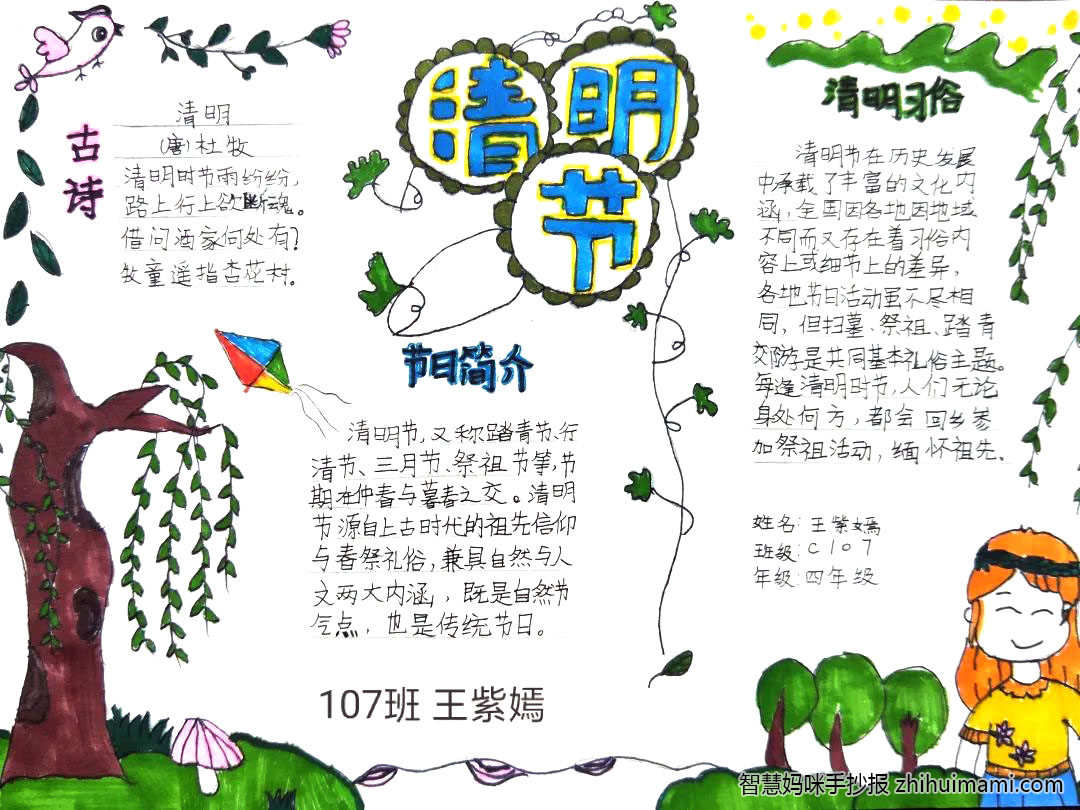 清明节
古诗
清明
(唐)杜牧
清明时节雨纷纷,
路上行上欲断魂。
借问酒家何处有?
牧童遥指杏花村。
节日简介
清明节,又称踏青节、行
清节、三月节、祭祖节等,节
期在仲春与暮春之交。清明
节源自上古时代的祖先信仰
与春祭礼俗,兼具自然与人
文两大内涵,既是自然节
气点,也是传统节日。
107班 王紫嫣
清明习俗
清明节在历史发展
中承载了丰富的文化内
涵,全国因各地因地域
不同而又存在着习俗内
容上或细节上的差异,
各地节日活动虽不尽相
同,但扫墓、祭祖、踏青
郊游是共同基本礼俗主题。
每逢清明时节,人们无论
身处何方,都会回乡参
加祭祖活动,缅怀祖先.
姓名:王紫嫣
班级:C107
年级:四年级
智慧妈咪手抄报 zhihuimami.com